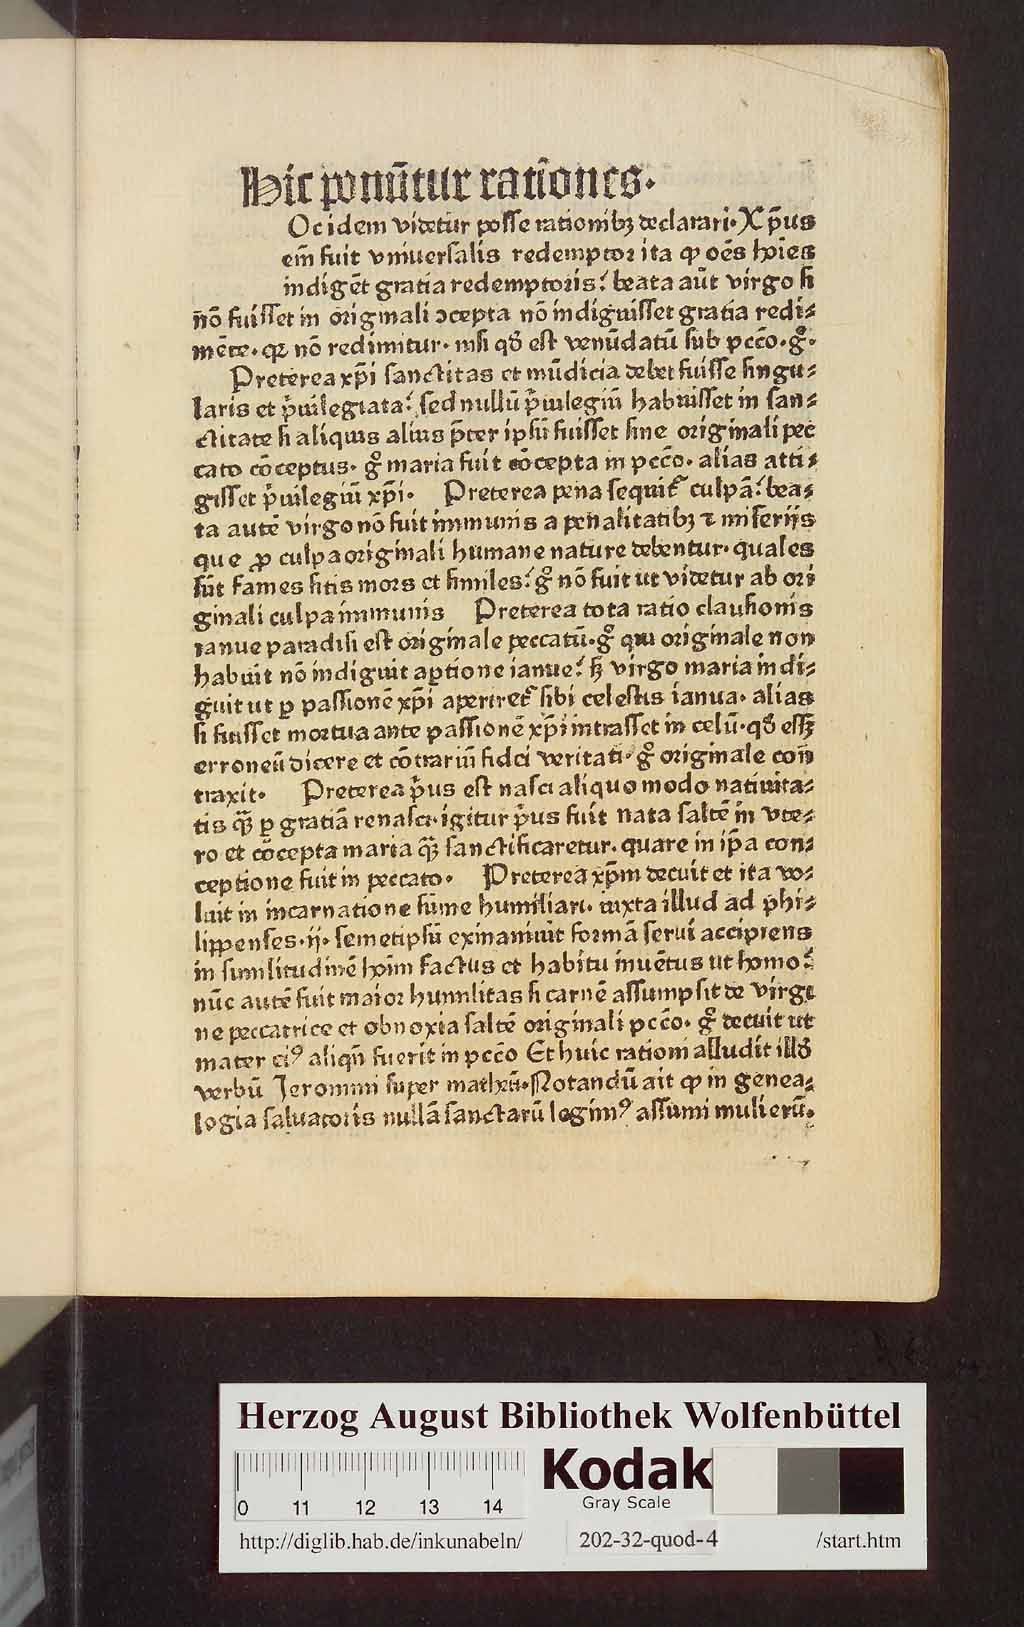 Hic ponũtur rationes.
Oc idem videtur posse rationibꝫ declarari. Xp̃us
em̃ fuit vniuersalis redemptor ita ꝙ oẽs hoĩes
indigẽt gratia redemptoris: beata aũt virgo si
nõ fuisset in originali ↄcepta nõ indiguisset gratia redi⸗
mẽte. qꝛ nõ redimitur. nisi qď est venũdatũ sub pctõ. gͦ.
Preterea xp̃i sanctitas et mũdicia debet fuisse singu⸗
laris et p̃uilegiata: sed nullũ p̃uilegiũ habuisset in san⸗
ctitate si aliquis alius p̃ter ipsũ fuisset sine originali pec
cato cõceptus. gͦ maria fuit cõcepta in pctõ. alias atti⸗
gisset p̃uilegiũ xp̃i. Preterea pena sequit᷑ culpã: bea⸗
ta autẽ virgo nõ fuit immunis a penalitatibꝫ ⁊ miserijs
que ꝓ culpa originali humane nature debentur. quales
sũt fames sitis mors et similes: gͦ nõ fuit ut videtur ab ori
ginali culpa immunis Preterea tota ratio clausionis
ianue paradisi est originale peccatũ. gͦ qui originale non
habuit nõ indiguit aꝑtione ianue: sꝫ virgo maria indi⸗
guit ut ꝑ passionẽ xp̃i aperiret᷑ sibi celestis ianua. alias
si fuisset mortua ante passionẽ xp̃i intrasset in celũ. qď essꝫ
erroneũ dicere et cõtrariũ fidei veritati. gͦ originale con
traxit. Preterea p̃us est nasci aliquo modo natiuita⸗
tis qꝫ̃ ꝑ gratiã renasci. igitur p̃us fuit nata saltẽ in vte⸗
ro et cõcepta maria qꝫ̃ sanctificaretur. quare in ip̃a con⸗
ceptione fuit in peccato. Preterea xp̃m decuit et ita vo⸗
luit in incarnatione sũme humiliari. iuxta illud ad phi⸗
lippenses. ij. semetipsũ exinaniuit formã serui accipiens
in similitudinẽ hoĩm factus et habitu inuẽtus ut homo:
nũc autẽ fuit maior humilitas si carnẽ assumpsit de virgi
ne peccatrice et obnoxia saltẽ originali pctõ. gͦ decuit ut
mater eiꝰ aliqñ fuerit in pctõ Et huic rationi alludit illď
verbũ Jeronimi super mathẽũ. Notandũ ait ꝙ in genea⸗
logia saluatoris nullã sanctarũ legimꝰ assumi mulierũ.
Herzog August Bibliothek Wolfenbüttel
Kodak
Gray Scale
0 11 12 13 14
http://diglib.hab.de/inkunabeln/ 202-32-quod-4 /start.htm